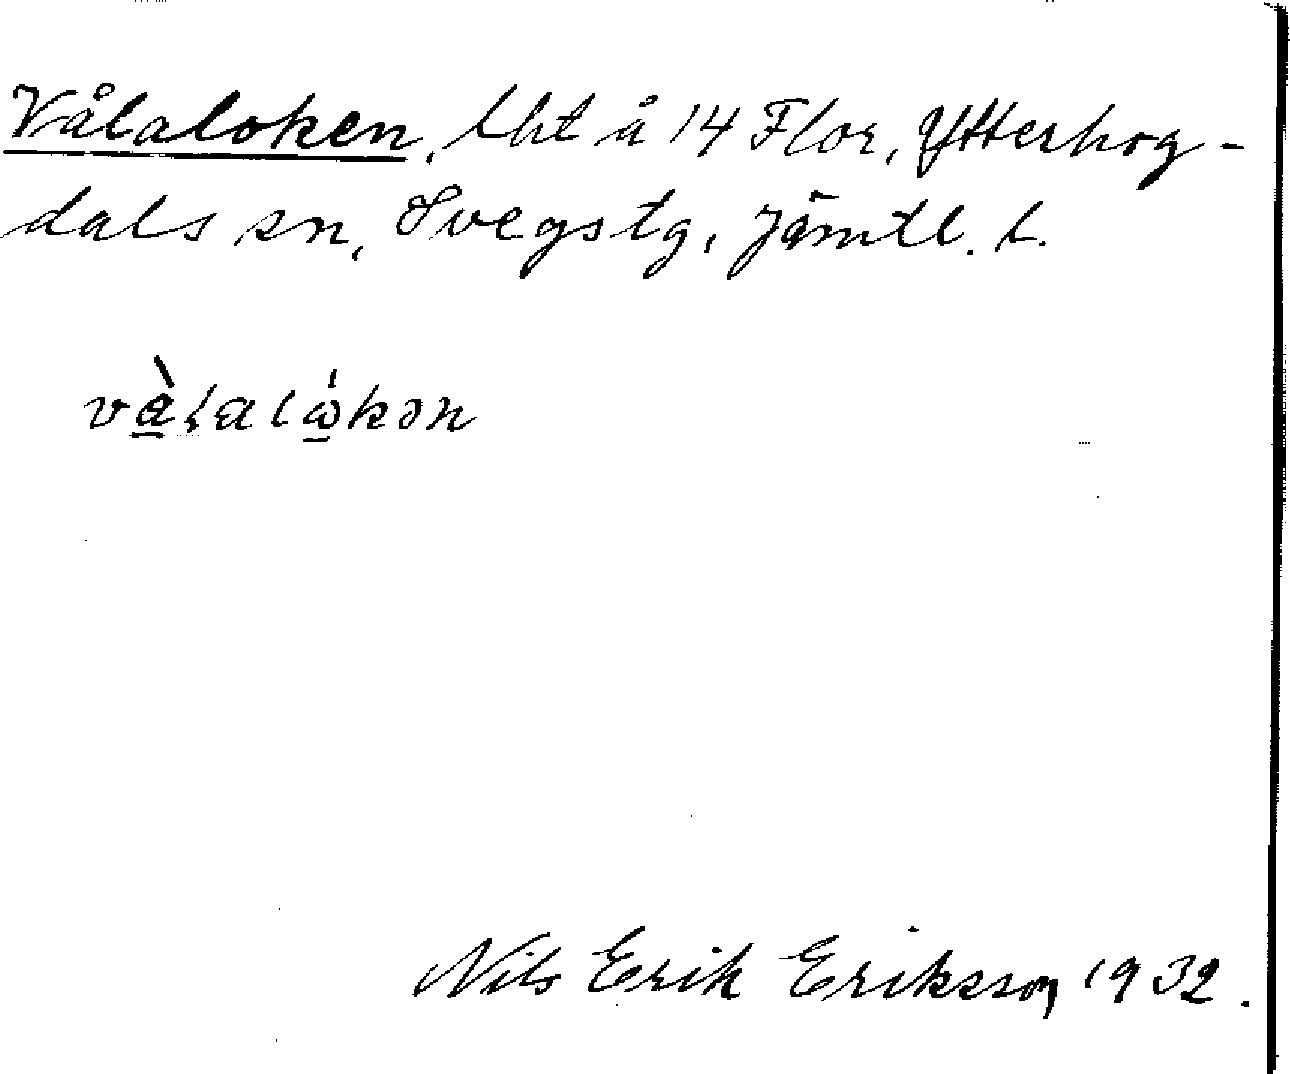 Vålaloken, lht å 14 Flor, Ytterhog-
dals sn, Svegs tg, Jämtl. l.
và̱ɭalώ̱kən
Nils Erik Eriksson 1932.